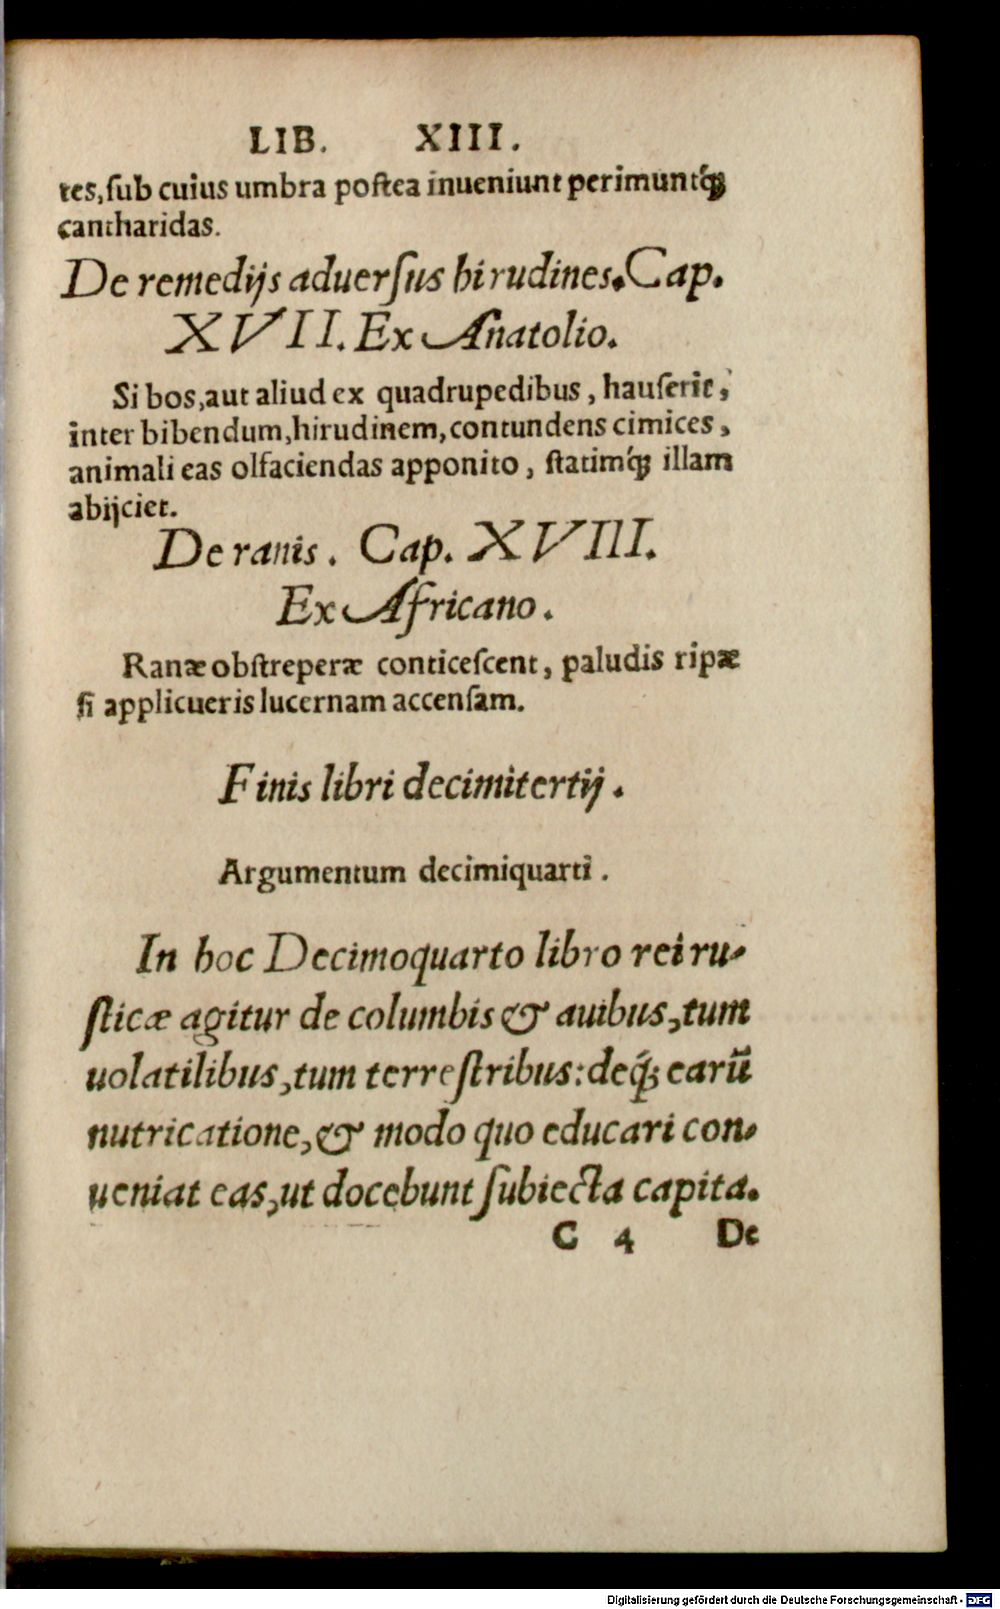 LIB. XIII.
tes,ſub cuius umbra poſtea inueniunt perimuntq́;
cantharidas.
De remedijs aduerſus hirudines.Cap.
XVII. Ex Anatolio.
Si bos,aut aliud ex quadrupedibus, hauſerit,
inter bibendum,hirudinem,contundens cimices,
animali eas olfaciendas apponito, ſtatimq́; illam
abijciet.
De ranis. Cap. XVIII.
Ex Africano.
Ranæ obſtreperæ conticeſcent, paludis ripæ
ſi applicueris lucernam accenſam.
Finis libri decimitertij.
Argumentum decimiquarti.
In hoc Decimoquarto libro rei ru-
ſticæ agitur de columbis & auibus,tum
uolatilibus,tum terreſtribus: deq́; earū
nutricatione,& modo quo educari con-
ueniat eas,ut docebunt ſubiecta capita.
C 4 De
Digitalisierung gefördert durch die Deutsche Forschungsgemeinschaft - DFG